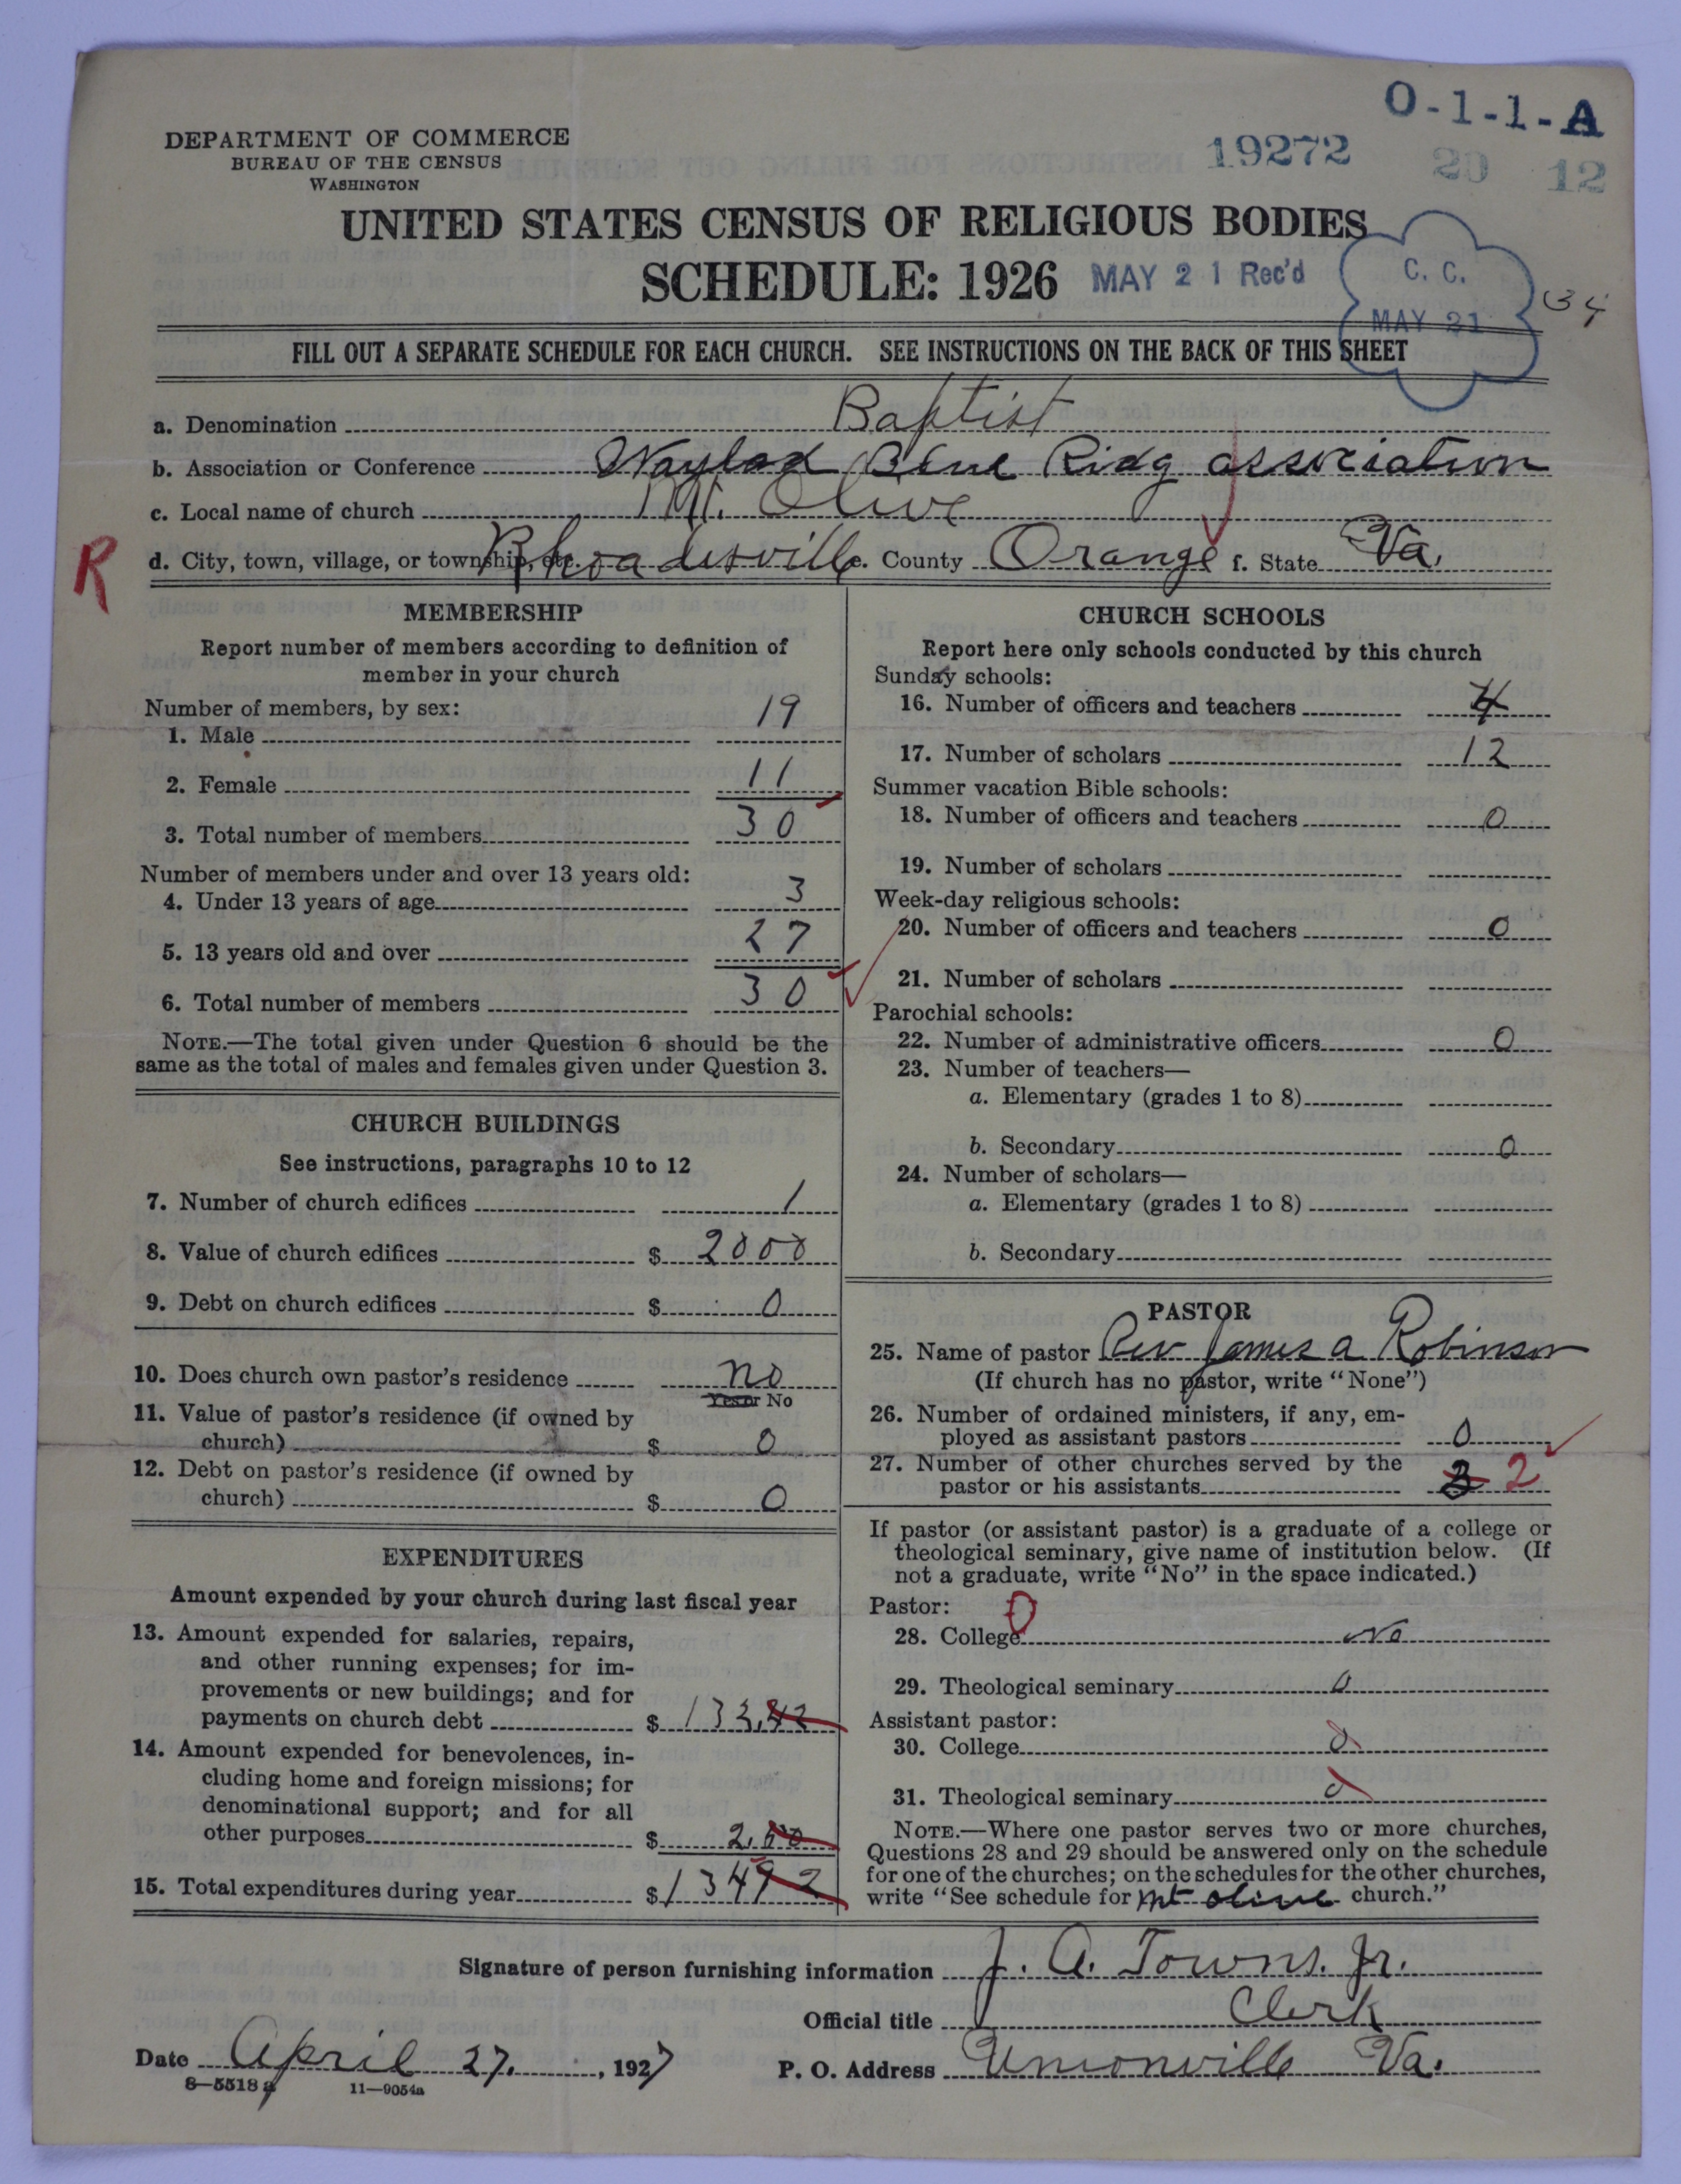 O-1-1-A
DEPARTMENT OF COMMERCE
BUREAU OF THE CENSUS
WASHINGTON
19272
29 12
UNITED STATES CENSUS OF RELIGIOUS BODIES
SCHEDULE: 1926
MAY 21 Rec'd
C. C.
MAY 21
34
FILL OUT A SEPARATE SCHEDULE FOR EACH CHURCH. SEE INSTRUCTIONS ON THE BACK OF THIS SHEET
a. Denomination Baptist
b. Association or Conference Waylad Blue Ridg association
c. Local name of church Mt. Olive
R
d. City, town, village, or township, etc. Rhoadesville e. County Orange f. State Va.
MEMBERSHIP
Report number of members according to definition of
member in your church
Number of members, by sex:
1. Male 19
2. Female 11
3. Total number of members 30
Number of members under and over 13 years old:
4. Under 13 years of age 3
5. 13 years old and over 27
6. Total number of members 30
NOTE.—The total given under Question 6 should be the
same as the total of males and females given under Question 3.
CHURCH BUILDINGS
See instructions, paragraphs 10 to 12
7. Number of church edifices 1
8. Value of church edifices $ 2000
9. Debt on church edifices $ 0
10. Does church own pastor's residence no
Yes or No
11. Value of pastor's residence (if owned by
church) $ 0
12. Debt on pastor's residence (if owned by
church) $ 0
EXPENDITURES
Amount expended by your church during last fiscal year
13. Amount expended for salaries, repairs,
and other running expenses; for im-
provements or new buildings; and for
payments on church debt $ 133,42
14. Amount expended for benevolences, in-
cluding home and foreign missions; for
denominational support; and for all
other purposes $
15. Total expenditures during year $ 13492
CHURCH SCHOOLS
Report here only schools conducted by this church
Sunday schools:
16. Number of officers and teachers 4
17. Number of scholars 12
Summer vacation Bible schools:
18. Number of officers and teachers 0
19. Number of scholars
Week-day religious schools:
20. Number of officers and teachers 0
21. Number of scholars
Parochial schools:
22. Number of administrative officers 0
23. Number of teachers—
a. Elementary (grades 1 to 8)
b. Secondary 0
24. Number of scholars—
a. Elementary (grades 1 to 8)
b. Secondary
PASTOR
25. Name of pastor Rev James a Robinson
(If church has no pastor, write "None")
26. Number of ordained ministers, if any, em-
ployed as assistant pastors 0
27. Number of other churches served by the
pastor or his assistants 3 2
If pastor (or assistant pastor) is a graduate of a college or
theological seminary, give name of institution below. (If
not a graduate, write "No" in the space indicated.)
Pastor: 0
28. College No
29. Theological seminary 0
Assistant pastor:
30. College 0
31. Theological seminary 0
NOTE.—Where one pastor serves two or more churches,
Questions 28 and 29 should be answered only on the schedule
for one of the churches; on the schedules for the other churches,
write "See schedule for Mt olive church."
Signature of person furnishing information J. A. Towns. Jr.
Official title Clerk
Date April 27, 1927 P. O. Address Unionville Va.
8—5518 a 11—9054a